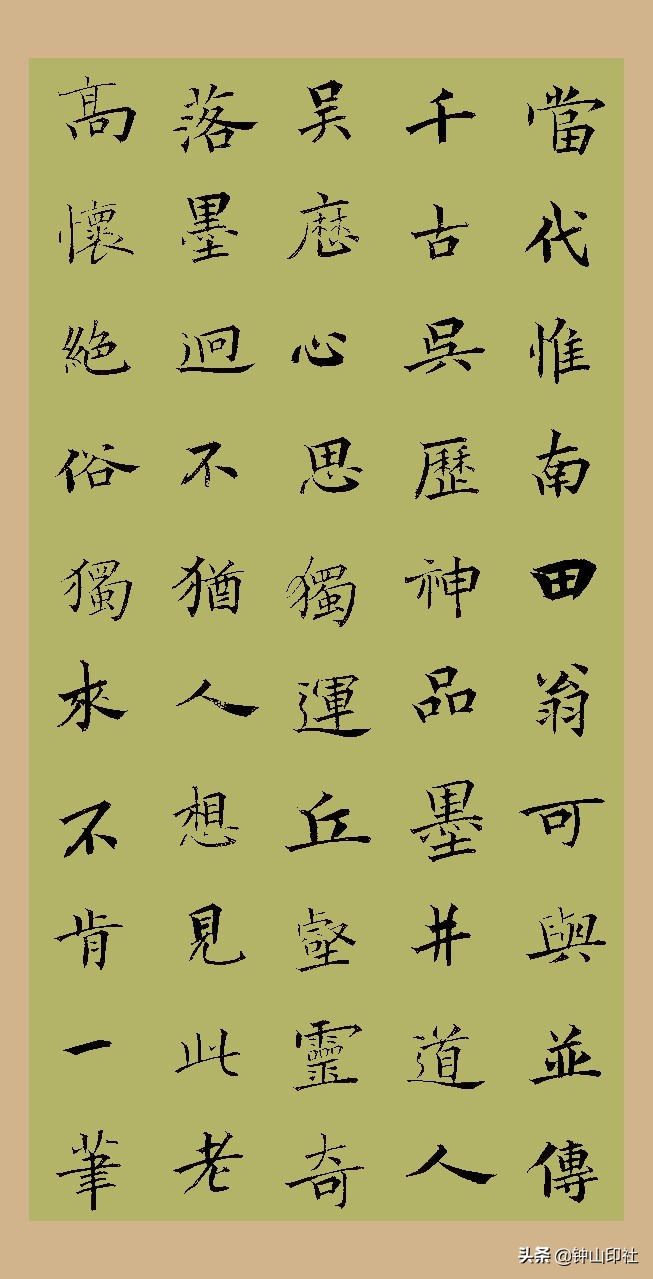 當代惟南田翁可與並傳
千古吳歷神品墨井道人
吴歷心思獨運丘壑靈奇
落墨迥不猶人想見此老
高懷絕俗獨來不肯一筆
头条 @钟山印社